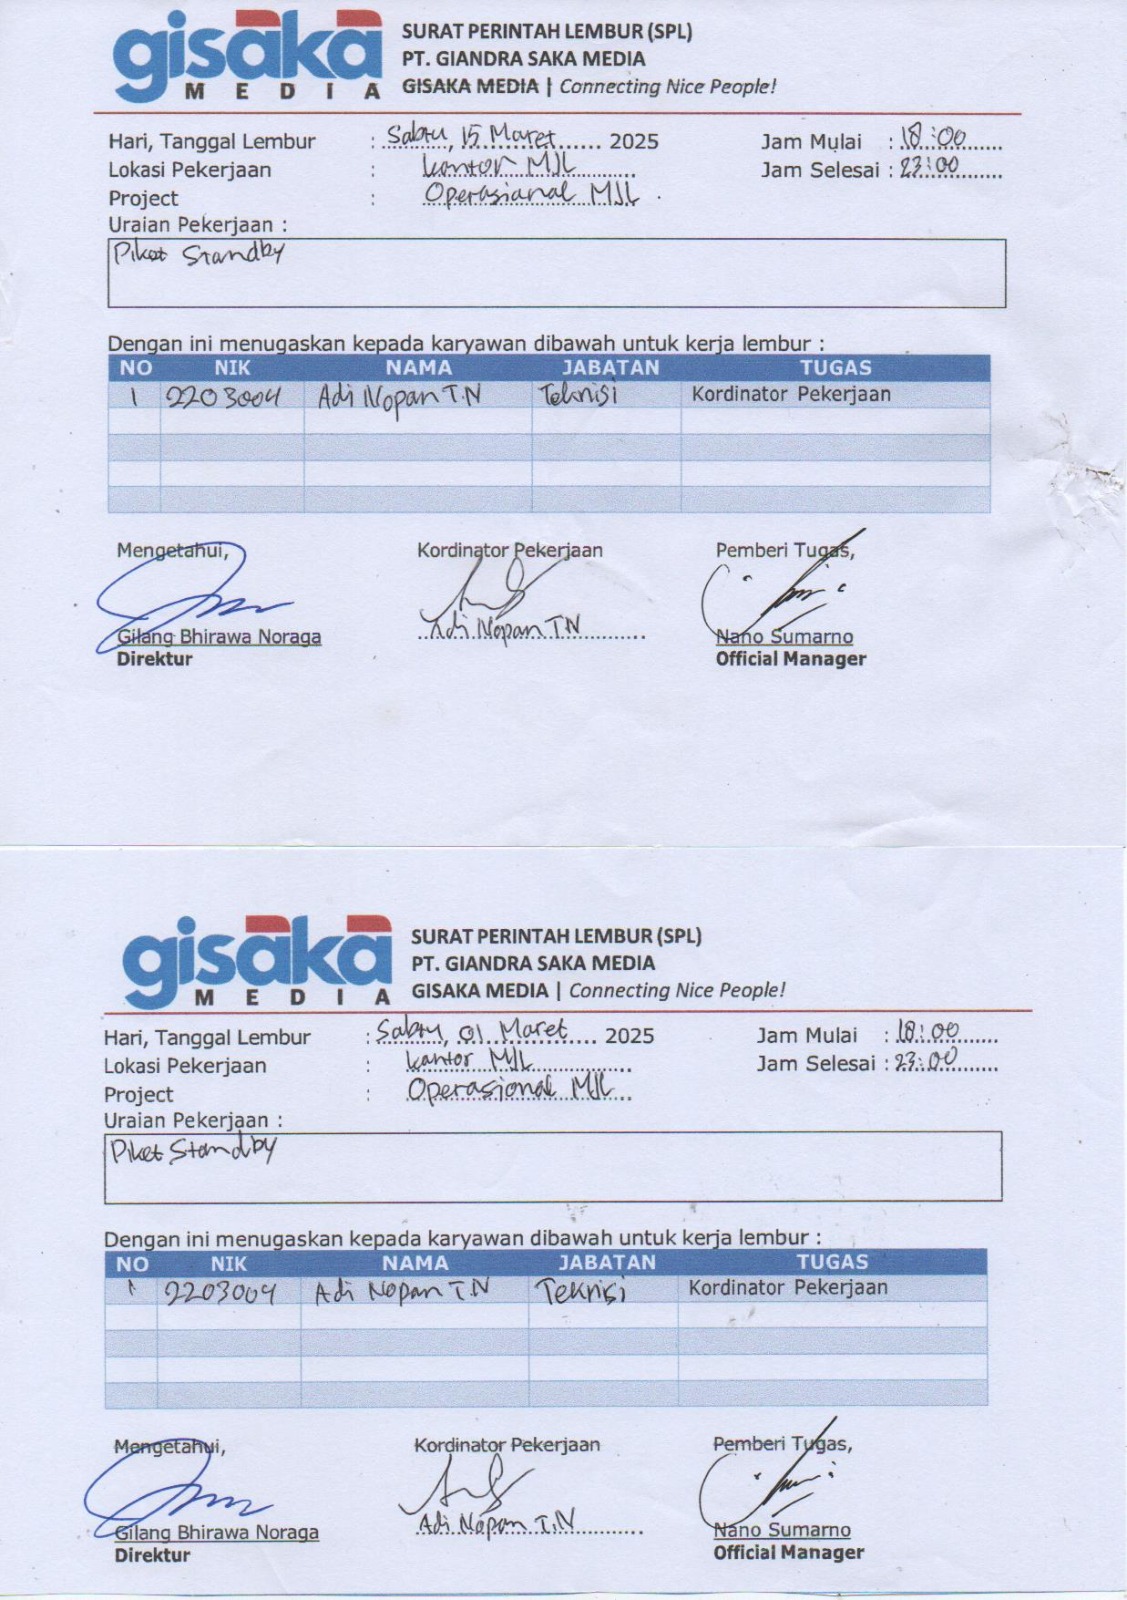 gisaka
MEDIA
SURAT PERINTAH LEMBUR (SPL)
PT. GIANDRA SAKA MEDIA
GISAKA MEDIA | Connecting Nice People!
Hari, Tanggal Lembur : Sabtu, 15 Maret 2025 Jam Mulai : 18:00
Lokasi Pekerjaan : kantor MJL Jam Selesai : 23:00
Project : Operasianal MJL
Uraian Pekerjaan :
Piket Standby
Dengan ini menugaskan kepada karyawan dibawah untuk kerja lembur :
NO NIK NAMA JABATAN TUGAS
1 2203004 Adi Nopan T.N Teknisi Kordinator Pekerjaan
Mengetahui, Kordinator Pekerjaan Pemberi Tugas,
Gilang Bhirawa Noraga Adi Nopan TN Nano Sumarno
Direktur Official Manager
gisaka
MEDIA
SURAT PERINTAH LEMBUR (SPL)
PT. GIANDRA SAKA MEDIA
GISAKA MEDIA | Connecting Nice People!
Hari, Tanggal Lembur : Sabtu, 01 Maret 2025 Jam Mulai : 18:00
Lokasi Pekerjaan : kantor MJL Jam Selesai : 23:00
Project : Operasional MJL
Uraian Pekerjaan :
Piket Standby
Dengan ini menugaskan kepada karyawan dibawah untuk kerja lembur :
NO NIK NAMA JABATAN TUGAS
1 2203004 Adi Nopan T.N Teknisi Kordinator Pekerjaan
Mengetahui, Kordinator Pekerjaan Pemberi Tugas,
Gilang Bhirawa Noraga Adi Nopan T.N Nano Sumarno
Direktur Official Manager